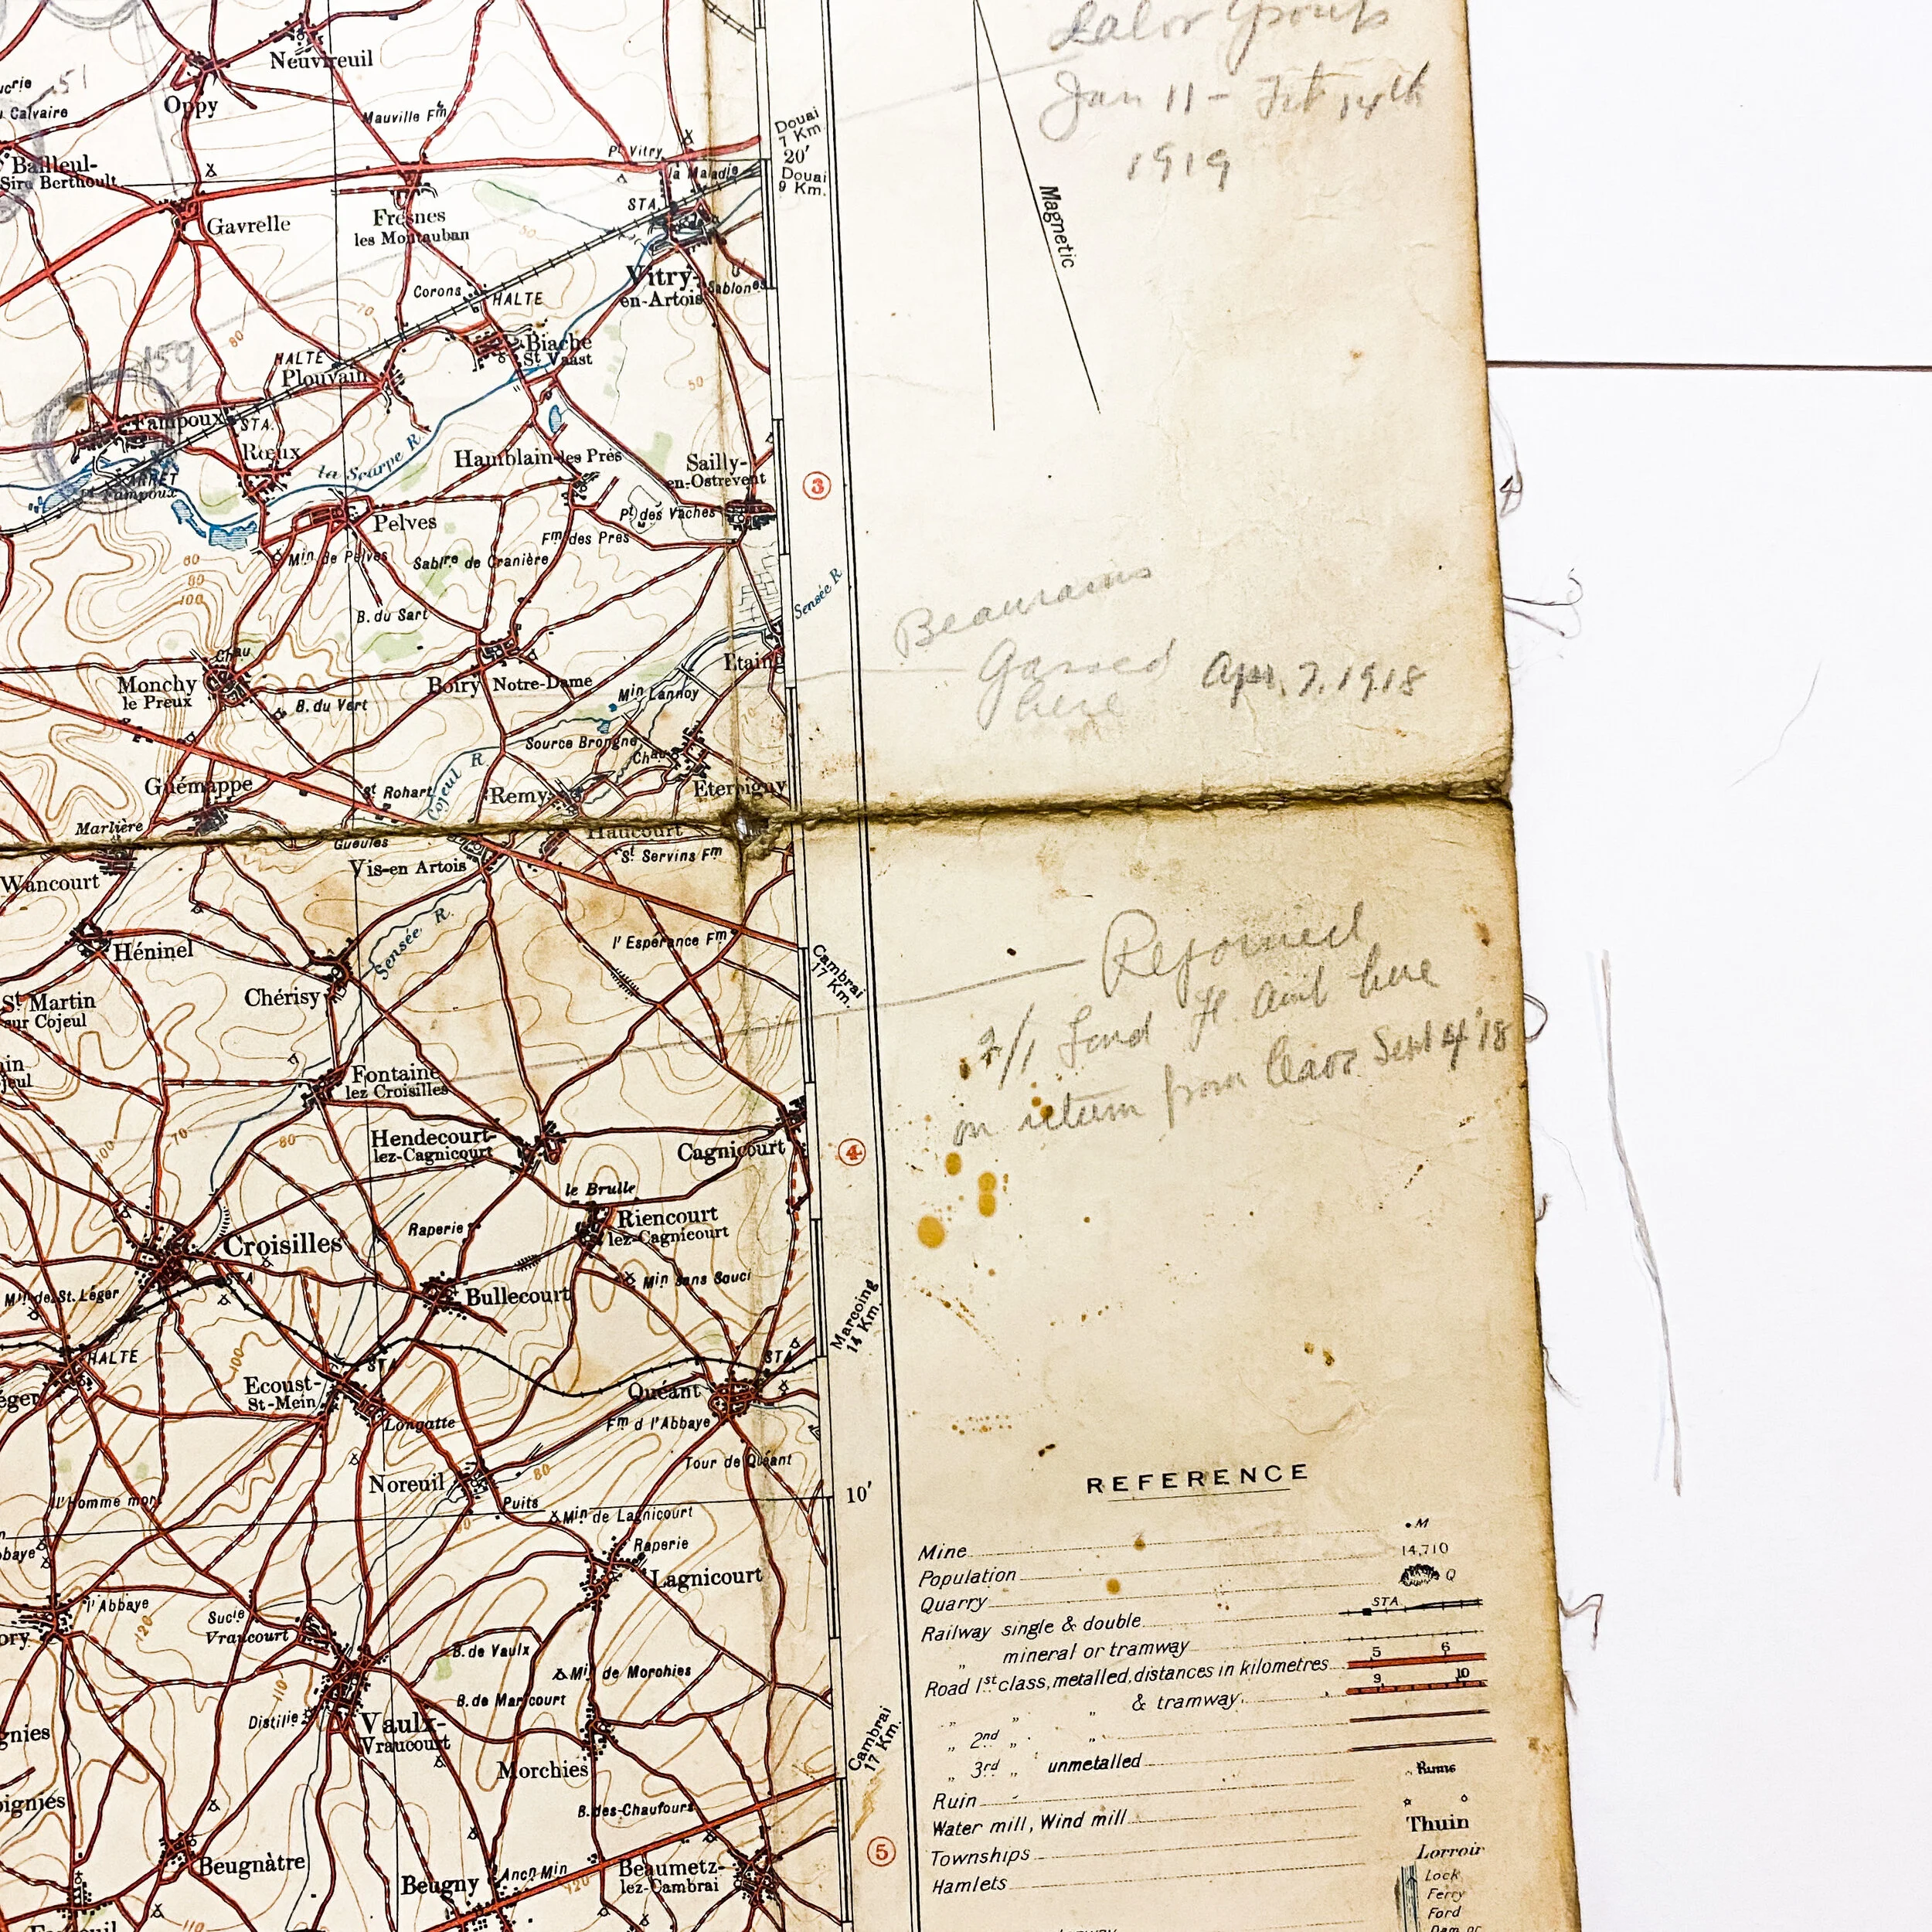 Neuvireuil
Oppy
51
Calvaire
Mauville Fm
Bailleul-
Sire Berthoult
Gavrelle
Fresnes
les Montauban
Pt Vitry
la Maladie
STA.
Vitry-
en-Artois
Sablones
Douai
7 Km.
20'
Douai
9 Km.
Magnetic
Labor Group
Jan 11 - Feb 14th
1919
50
70
80
Corons
HALTE
Biache
St Vaast
HALTE
Plouvain
50
159
Fampoux
STA.
ARRÊT
Fampoux
Rœux
la Scarpe R.
Hamblain-les Prés
Sailly-
en-Ostrevent
3
Pelves
Pt des Vaches
Fm des Prés
Min de Pelves
Sabre de Cranière
80
90
100
B. du Sart
Sensée R
Chau
Monchy
le Preux
Boiry Notre-Dame
Etaing
B. du Vert
Min Lannoy
Beaurains
Gassed
here
Apr. 7. 1918
Source Brongne
Chau
Cojeul R.
Guémappe
St Rohart
Remy
Eterpigny
Marlière
Gueules
Haucourt
Wancourt
Vis-en Artois
St Servins Fm
Héninel
Sensée R.
l'Espérance Fm
Chérisy
St Martin
sur Cojeul
Cambrai
17 Km.
Rejoined
2/1 Lond Fd. Amb here
on return from leave Sept 4 '18
Fontaine
lez Croisilles
100
70
80
Hendecourt-
lez-Cagnicourt
Cagnicourt
4
le Brulle
Riencourt
lez-Cagnicourt
Raperie
Croisilles
STA
Min sans Souci
Min de St. Léger
Bullecourt
HALTE
100
STA
STA
Marcoing
14 Km.
Ecoust-
St-Mein
Quéant
Longatte
Fm d l'Abbaye
Tour de Quéant
Noreuil
80
l'Homme mort
Puits
Min de Lagnicourt
10'
Raperie
Lagnicourt
l'Abbaye
120
Sucie
Vraucourt
B. de Vaulx
Min de Morchies
110
B. de Maricourt
Distilie
Vaulx-
Vraucourt
Morchies
Cambrai
17 Km.
B. des-Chaufours
Beugnàtre
Beugny
Ancn Min
120
Beaumetz-
lez-Cambrai
5
110
REFERENCE
Mine M
Population 14,710
Quarry Q
Railway single & double STA.
„ mineral or tramway
Road 1st class, metalled, distances in kilometres 5 6
„ „ „ & tramway 9 10
„ 2nd „ „
„ 3rd „ unmetalled
Ruin Ruins
Water mill, Wind mill
Townships Thuin
Hamlets Lorroir
Lock
Ferry
Ford
Dam or